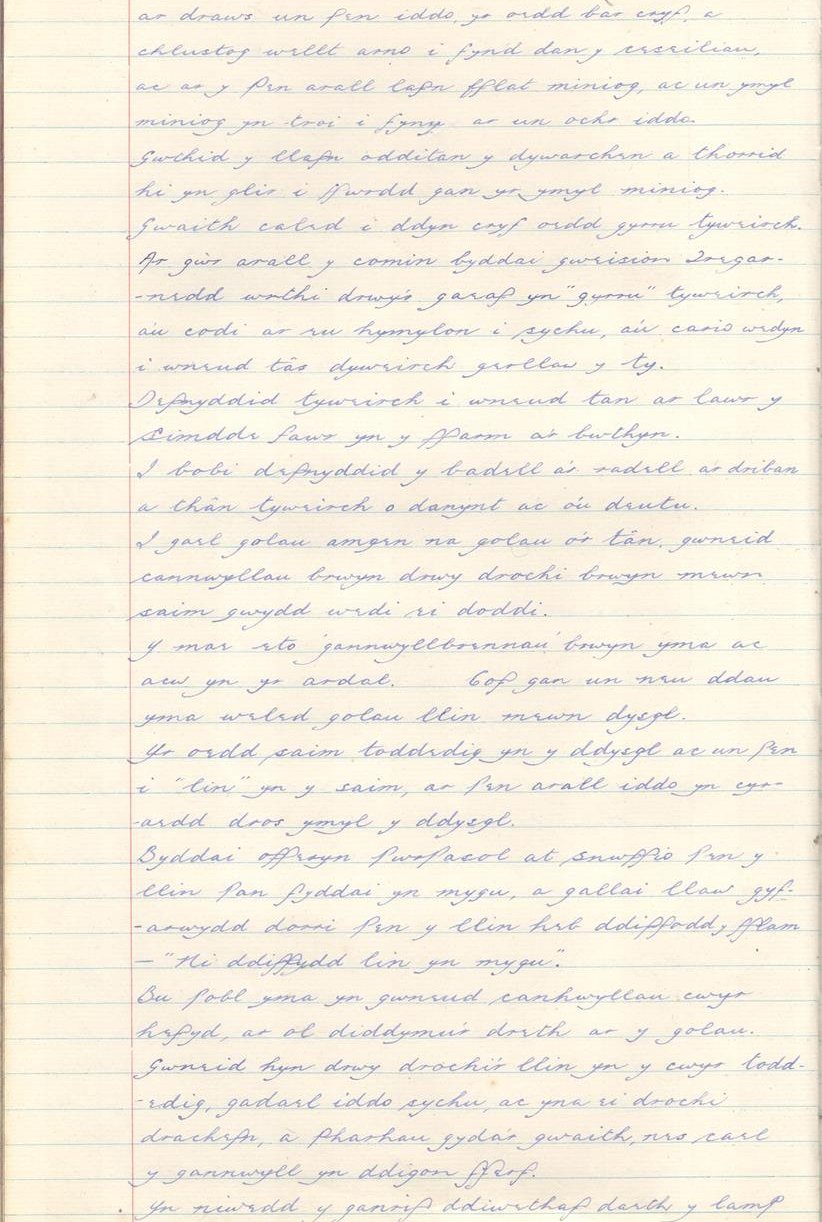 ar draws un pen iddo, yr oedd bar cryf, a
chlustog wellt arno i fynd dan y ceseiliau,
ac ar y pen arall lafn fflat miniog, ac un ymyl
miniog yn troi i fyny ar un ochr iddo.
Gwthid y llafn odditan y dywarchen a thorrid
hi yn glir i ffwrdd gan yr ymyl miniog.
Gwaith caled i ddyn cryf oedd gyrru tyweirch.
Ar gŵr arall y comin byddai gweision Tregar-
-nedd wrthi drwy'r gaeaf yn "gyrru" tyweirch,
a'u codi ar eu hymylon i sychu, a'u cario wedyn
i wneud tâs dyweirch gerllaw y ty.
Defnyddid tyweirch i wneud tan ar lawr y
simdde fawr yn y ffarm a'r bwthyn.
I bobi defnyddid y badell a'r radell ar driban
a thân tyweirch o danynt ac o'u deutu.
I gael golau amgen na golau o'r tân, gwneid
cannwyllau brwyn drwy drochi brwyn mewn
saim gwydd wedi ei doddi.
Y mae eto 'gannwyllbrennau' brwyn yma ac
acw yn yr ardal. Cof gan un neu ddau
yma weled golau llin mewn dysgl.
Yr oedd saim toddedig yn y ddysgl ac un pen
i "lin" yn y saim, a'r pen arall iddo yn cyr-
-aedd dros ymyl y ddysgl.
Byddai offeryn pwrpasol at snwffio pen y
llin pan fyddai yn mygu, a gallai llaw gyf-
-arwydd dorri pen y llin heb ddiffodd y fflam
— "Ni ddiffydd lin yn mygu".
Bu pobl yma yn gwneud canhwyllau cwyr
hefyd, ar ol diddymu'r dreth ar y golau.
Gwneid hyn drwy drochi'r llin yn y cwyr todd-
-edig, gadael iddo sychu, ac yna ei drochi
drachefn, a pharhau gyda'r gwaith, nes cael
y gannwyll yn ddigon fferf.
Yn niwedd y ganrif ddiwethaf daeth y lamp